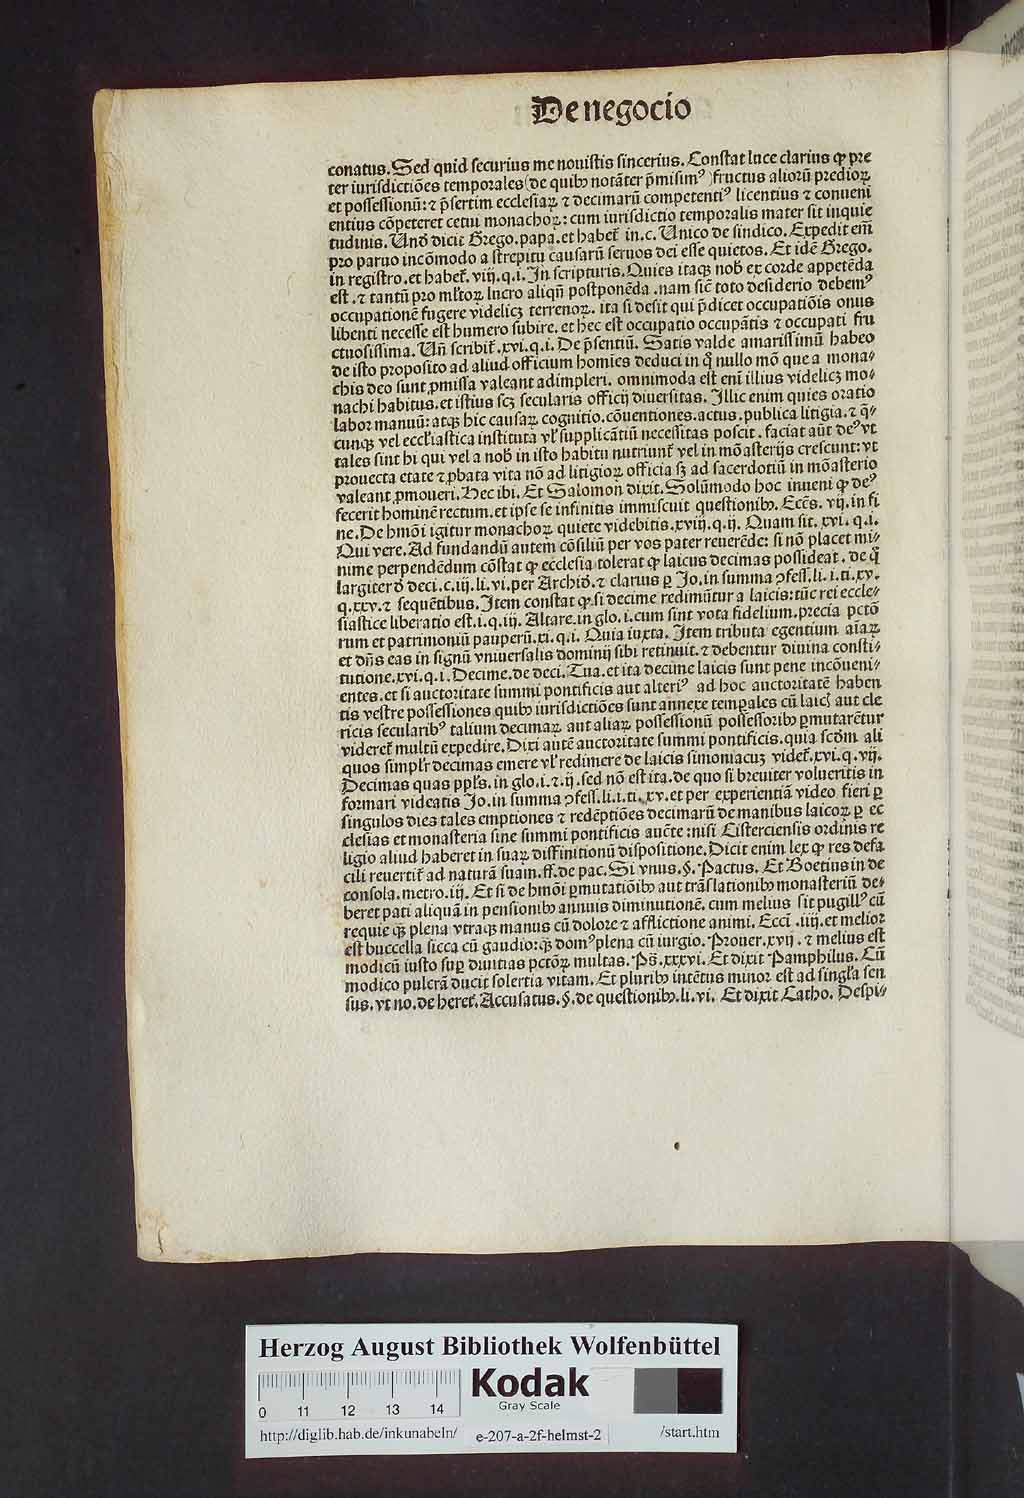 De negocio
conatus. Sed quid securius me nouistis sincerius. Constat luce clarius ꝙ pre
ter iurisdictiões temporales (de quibꝰ notãter p̃misimꝰ) fructus aliorũ predioꝝ
et possessionũ: ⁊ p̃sertim ecclesiaꝝ ⁊ decimarũ competentiꝰ licentius ⁊ conueni
entius cõpeteret cetui monachoꝝ: cum iurisdictio temporalis mater sit inquie
tudinis. Vnď dicit Grego. papa. et habet᷑ in. c. Vnico de sindico. Expedit em̃
pro paruo incõmodo a strepitu causarũ seruos dei esse quietos. Et idẽ Grego.
in registro. et habet᷑. viij. q. i. In scripturis. Quies itaqꝫ nob̃ ex corde appetẽda
est. ⁊ tantũ pro ml̃toꝝ lucro aliqñ postponẽda. nam sic̃ toto desiderio debemꝰ
occupationẽ fugere videlicꝫ terrenoꝝ. ita si desit qui p̃dicet occupatiõis onus
libenti necesse est humero subire. et hec est occupatio occupãtis ⁊ occupati fru
ctuosissima. Vñ scribit᷑. xvi. q. i. De p̃sentiũ. Satis valde amarissimũ habeo
de isto proposito ad aliud officium homĩes deduci in q̃ nullo mõ que a mona⸗
chis deo sunt ꝓmissa valeant adimpleri. omnimoda est em̃ illius videlicꝫ mo⸗
nachi habitus. et istius scꝫ secularis officij diuersitas. Illic enim quies oratio
labor manuũ: atqꝫ hic causaꝝ cognitio. cõuentiones. actus. publica litigia. ⁊ q̃⸗
cunqꝫ vel eccl̃iastica instituta vl̃ supplicãtiũ necessitas poscit. faciat aũt deꝰ vt
tales sint hi qui vel a nob̃ in isto habitu nutriunt᷑ vel in mõasterijs crescunt: vt
prouecta etate ⁊ ꝓbata vita nõ ad litigioꝝ officia sꝫ ad sacerdotiũ in mõasterio
valeant ꝓmoueri. Hec ibi. Et Salomon dixit. Solũmodo hoc inueni ꝙ deꝰ
fecerit hominẽ rectum. et ipse se infinitis immiscuit questionibꝰ. Ecc̃s. vij. in fi
ne. De hm̃oi igitur monachoꝝ quiete videbitis. xviij. q. ij. Quam sit. xvi. q. i.
Qui vere. Ad fundandũ autem cõsiliũ per vos pater reuerẽde: si nõ placet mi⸗
nime perpendẽdum cõstat ꝙ ecclesia tolerat ꝙ laicus decimas possideat. de q̃
largiter ď deci. c. iij. li. vi. per Archiď. ⁊ clarius ꝑ Jo. in summa ↄfess. li. i. ti. xv.
q. xxv. ⁊ sequẽtibus. Item constat ꝙ si decime redimũtur a laicis: tũc rei eccle⸗
siastice liberatio est. i. q. iij. Altare. in glo. i. cum sint vota fidelium. precia pctõ
rum et patrimoniũ pauperũ. xi. q. i. Quia iuxta. Item tributa egentium aĩaꝝ
et dñs eas in signũ vniuersalis dominij sibi retinuit. ⁊ debentur diuina consti⸗
tutione. xvi. q. i. Decime. de deci. Tua. et ita decime laicis sunt pene incõueni⸗
entes. et si auctoritate summi pontificis aut alteriꝰ ad hoc auctoritatẽ haben
tis vestre possessiones quibꝰ iurisdictiões sunt annexe temꝑales cũ laicꝭ aut cle
ricis secularibꝰ talium decimaꝝ aut aliaꝝ possessionũ possessoribꝰ ꝑmutarẽtur
videret᷑ multũ expedire. Dixi autẽ auctoritate summi pontificis. quia scďm ali
quos simpl̃r decimas emere vl̃ redimere de laicis simoniacuꝫ videt᷑. xvi. q. vij.
Decimas quas ppl̃s. in glo. i. ⁊ ij. sed nõ est ita. de quo si breuiter volueritis in
formari videatis Jo. in summa ↄfess. li. i. ti. xv. et per experientiã video fieri ꝑ
singulos dies tales emptiones ⁊ redẽptiões decimarũ de manibus laicoꝝ ꝑ ec
clesias et monasteria sine summi pontificis auc̃te: nisi Cisterciensis ordinis re
ligio aliud haberet in suaꝝ diffinitionũ dispositione. Dicit enim lex ꝙ res defa
cili reuertit᷑ ad naturã suam. ff. de pac. Si vnus. §. Pactus. Et Boetius in de
consola. metro. iij. Et si de hm̃oi ꝑmutatiõibꝰ aut trãslationibꝰ monasteriũ de⸗
beret pati aliquã in pensionibꝰ annuis diminutionẽ. cum melius sit pugillꝰ cũ
requie qꝫ plena vtraqꝫ manus cũ dolore ⁊ afflictione animi. Ecc̃i. iiij. et melior
est buccella sicca cũ gaudio: qꝫ domꝰ plena cũ iurgio. Prouer. xvij. ⁊ melius est
modicũ iusto suꝑ diuitias pctõꝝ multas. Ps̃. xxxvi. Et dixit Pamphilus. Cũ
modico pulcrã ducit solertia vitam. Et pluribꝰ intẽtus minor est ad singl̃a sen
sus. vt no. de heret᷑. Accusatus. §. de questionibꝰ. li. vi. Et dixit Catho. Despi⸗
Herzog August Bibliothek Wolfenbüttel
Kodak
Gray Scale
0 11 12 13 14
http://diglib.hab.de/inkunabeln/ e-207-a-2f-helmst-2 /start.htm